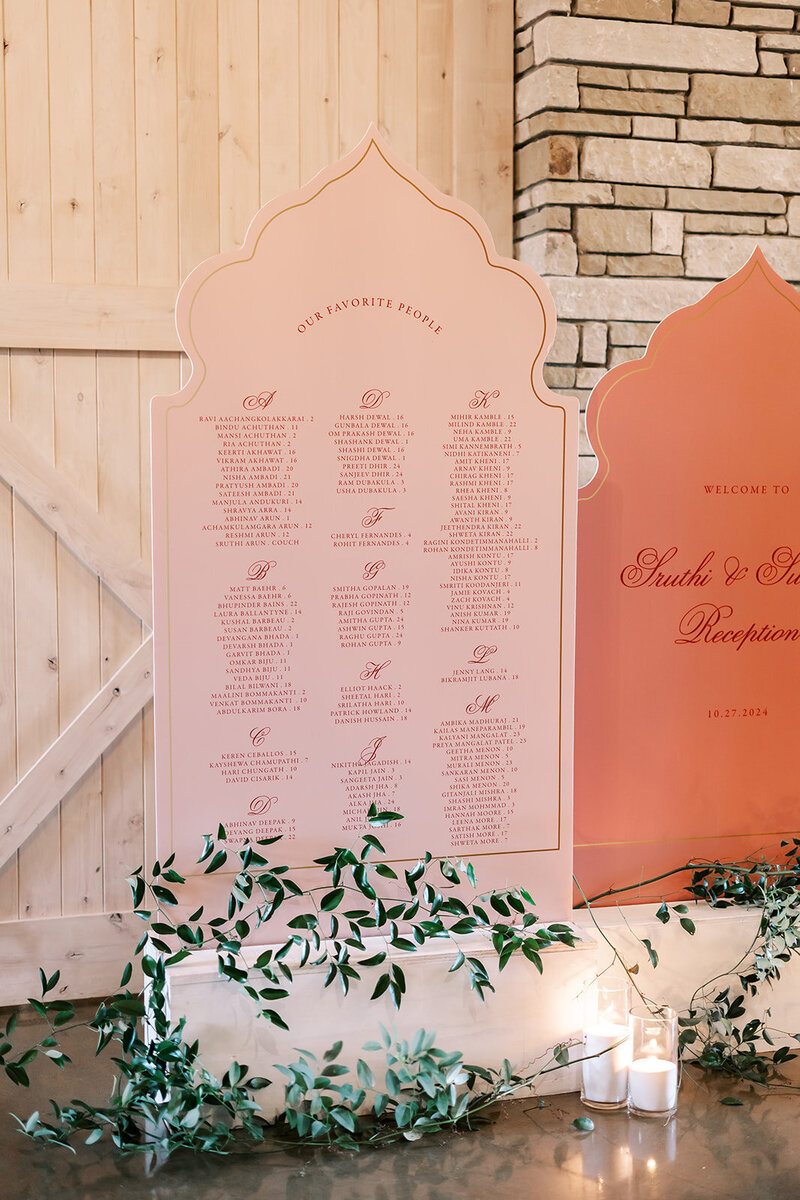 OUR FAVORITE PEOPLE
A
RAVI AACHANGKOLAKKARAI . 2
BINDU ACHUTHAN . 11
MANSI ACHUTHAN . 2
RIA ACHUTHAN . 2
KEERTI AKHAWAT . 16
VIKRAM AKHAWAT . 16
ATHIRA AMBADI . 20
NISHA AMBADI . 21
PRATYUSH AMBADI . 20
SATEESH AMBADI . 21
MANJULA ANDUKURI . 14
SHRAVYA ARRA . 4
ABHINAV ARUN . 1
ACHAMKULAMGARA ARUN . 12
RESHMI ARUN . 12
SRUTHI ARUN . COUCH
B
MATT BAEHR . 6
VANESSA BAEHR . 6
BHUPINDER BAINS . 22
LAURA BALLANTYNE . 14
KUSHAL BARBEAU . 2
SUSAN BARBEAU . 2
DEVANGANA BHADA . 1
DEVARSH BHADA . 1
GARVIT BHADA . 1
OMKAR BIJU . 11
SANDHYA BIJU . 11
VEDA BIJU . 11
BILAL BILWANI . 18
MAALINI BOMMAKANTI . 2
VENKAT BOMMAKANTI . 10
ABDULKARIM BORA . 18
C
KEREN CEBALLOS . 15
KAYSHEWA CHAMUPATHI . 7
HARI CHUNGATH . 10
DAVID CISARIK . 14
D
ABHINAV DEEPAK . 9
DEVANG DEEPAK .
DEEPAK . 22
D
HARSH DEWAL . 16
GUNBALA DEWAL . 16
OM PRAKASH DEWAL . 16
SHASHANK DEWAL . 1
SHASHI DEWAL . 16
SNIGDHA DEWAL . 1
PREETI DHIR . 24
SANJEEV DHIR . 24
RAM DUBAKULA . 3
USHA DUBAKULA . 3
F
CHERYL FERNANDES . 4
ROHIT FERNANDES . 4
G
SMITHA GOPALAN . 19
PRABHA GOPINATH . 12
RAJESH GOPINATH . 12
RAJI GOVINDAN . 3
AMITHA GUPTA . 24
ASHWIN GUPTA . 15
RAGHU GUPTA . 24
ROHAN GUPTA . 9
H
ELLIOT HAACK . 2
SHEETAL HARI . 2
SRILATHA HARI . 10
PATRICK HOWLAND . 14
DANISH HUSSAIN . 18
J
NIKITHA JAGADISH . 14
KAPIL JAIN . 3
SANGEETA JAIN . 3
ADARSH JHA . 8
AKASH JHA . 7
ALKA JHA . 24
18
ANIL
MUKTA . 16
K
MIHIR KAMBLE . 15
MILIND KAMBLE . 22
NEHA KAMBLE . 9
UMA KAMBLE . 22
SIMI KANNEMBRATH . 5
NIDHI KATIKANENI . 7
AMIT KHENI . 17
ARNAV KHENI . 9
CHIRAG KHENI . 17
RASHMI KHENI . 17
RHEA KHENI . 8
SAESHA KHENI . 9
SHITAL KHENI . 17
AVANI KIRAN . 9
AWANTH KIRAN . 9
JEETHENDRA KIRAN . 22
SHWETA KIRAN . 22
RAGINI KONDETIMMANAHALLI . 2
ROHAN KONDETIMMANAHALLI . 8
AMRISH KONTU . 17
AYUSHI KONTU . 9
IDIKA KONTU . 8
NISHA KONTU . 17
SMRITI KOODANJERI . 11
JAMIE KOVACH . 4
ZACH KOVACH . 4
VINU KRISHNAN . 12
ANISH KUMAR . 19
NINA KUMAR . 19
SHANKER KUTTATH . 10
L
JENNY LANG . 14
BIKRAMJIT LUBANA . 18
M
AMBIKA MADHURAJ . 21
KAILAS MANEPARAMBIL . 19
KALYANI MANGALAT . 23
PREYA MANGALAT PATEL . 23
GEETHA MENON . 10
MITRA MENON . 5
MURALI MENON . 23
SANKARAN MENON . 10
SASI MENON . 5
SHIKA MENON . 20
GITANJALI MISHRA . 18
SHASHI MISHRA . 3
IMRAN MOHMMAD . 3
HANNAH MOORE . 15
LEENA MORE . 17
SARTHAK MORE . 7
SATISH MORE . 17
SHWETA MORE . 7
WELCOME TO
Sruthi & Su
Reception
10.27.2024